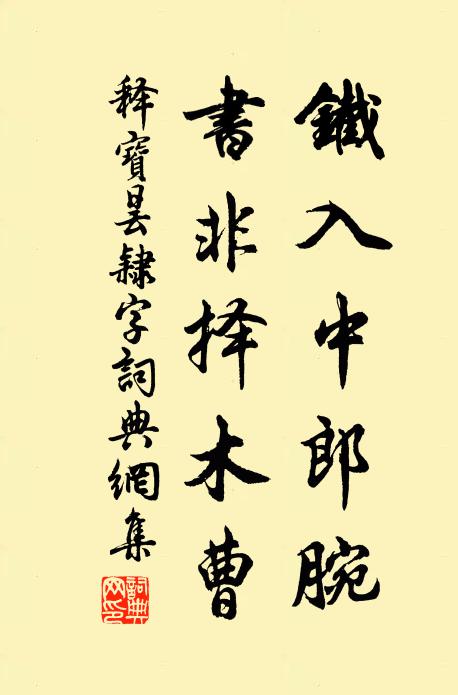 鐵入中郎腕
書非择木曹
释寶昙隸字詞典網集
詞典網印